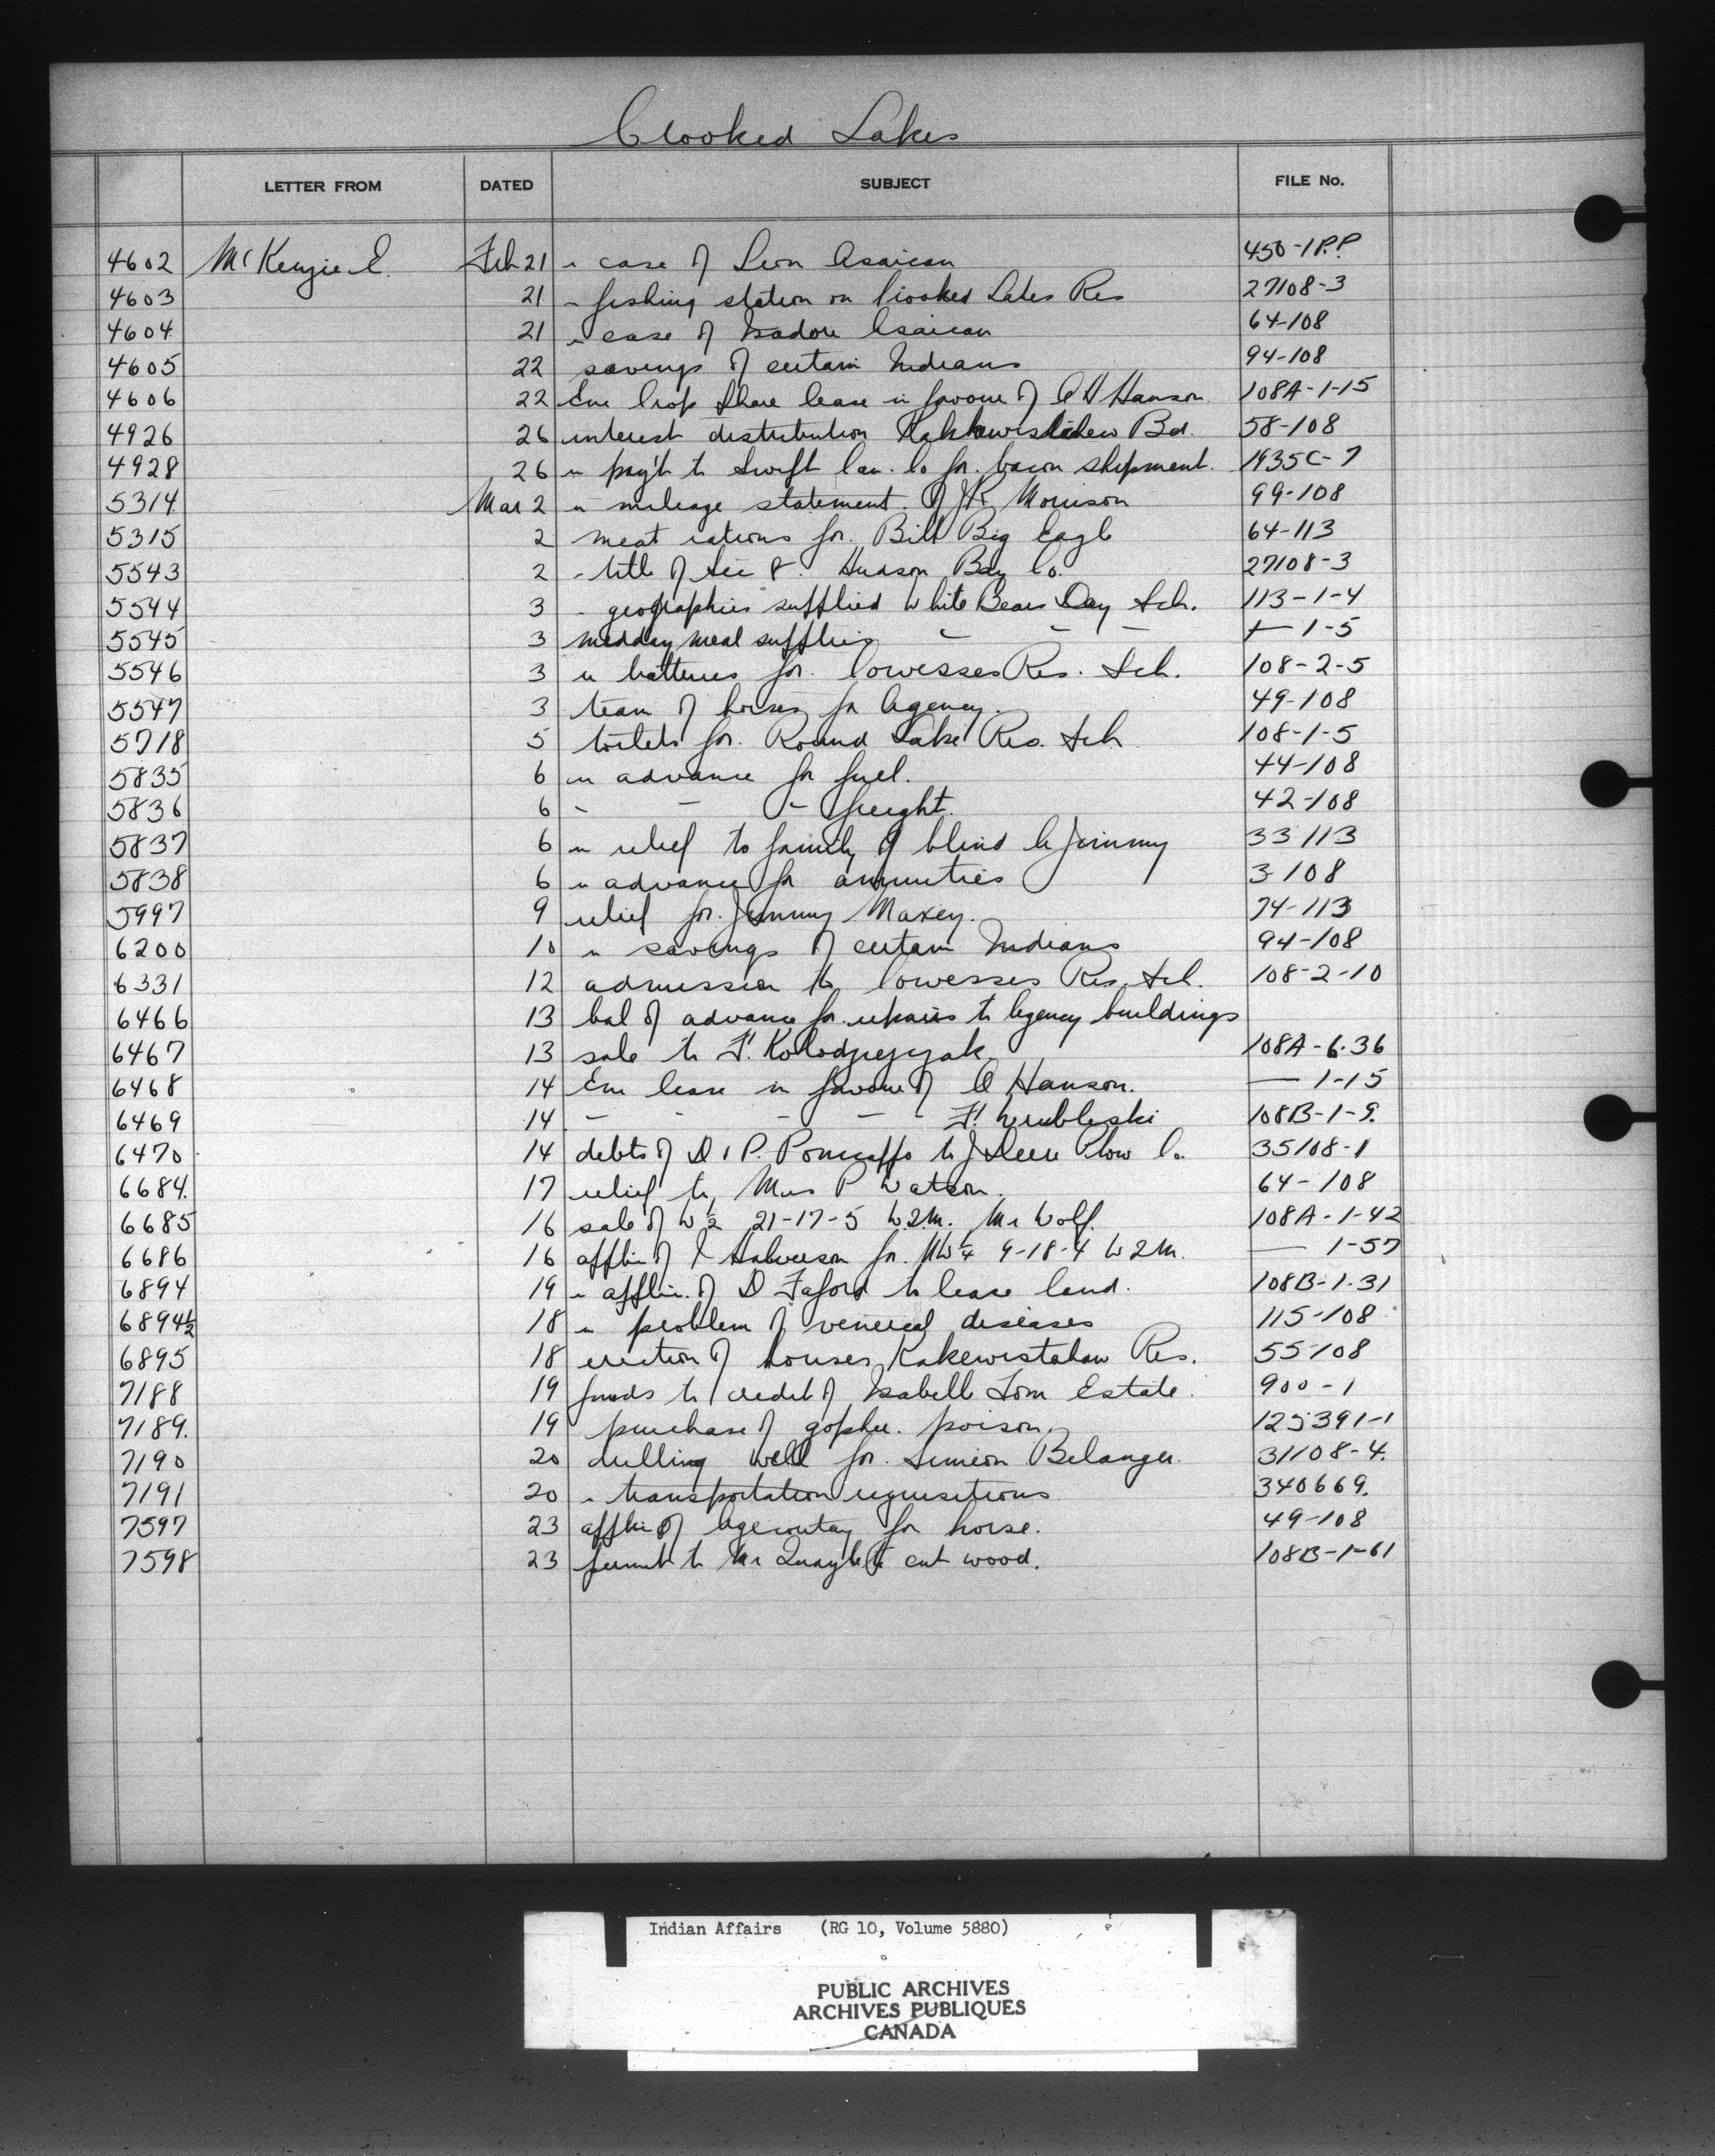 Crooked Lakes
LETTER FROM DATED SUBJECT FILE No.
4602 McKenzie E. Feb 21 " case of Leon Asaican 450-1 P.P.
4603 21 " fishing station on Crooked Lakes Res 27108-3
4604 21 " case of Isadore Asaican 64-108
4605 22 savings of certain Indians 94-108
4606 22 Em Crop Share lease in favour of A H Hanson 108A-1-15
4926 26 interest distribution Kahkewistahaw Bd. 58-108
4928 26 " pay't to Swift Can. Co for. bacon shipment. 1935C-7
5314 Mar 2 " mileage statement of J.R. Morrison 99-108
5315 2 meat rations for. Bill Big Eagle 64-113
5543 2 " title of Sec 8. Hudson Bay Co. 27108-3
5544 3 " geographies supplied White Bears Day Sch. 113-1-4
5545 3 midday meal supplies - - - — 1-5
5546 3 " batteries for. Cowesses Res. Sch. 108-2-5
5547 3 team of horses for Agency. 49-108
5718 5 toilets for. Round Lake Res. Sch 108-1-5
5835 6 " advance for fuel. 44-108
5836 6 - - - freight. 42-108
5837 6 " relief to family of blind Jimmy 33113
5838 6 " advance for annuities 3-108
5997 9 relief for. Jimmy Maxey. 74-113
6200 10 " savings of certain Indians 94-108
6331 12 admission to Cowesses Res. Sch. 108-2-10
6466 13 bal of advance for. repairs to Agency buildings
6467 13 sale to F. Kolodziejczak. 108A-6-36
6468 14 Em lease in favour of A Hanson. — 1-15
6469 14 - - - - - F. Wrubleski 108B-1-9.
6470 14 debts of D & P. to J Deere Plow Co. 35108-1
6684. 17 relief to, Mrs P Watson. 64-108
6685 16 sale of W ½ 21-17-5 W.2.M. Mr Wolf. 108A-1-42
6686 16 applin of Halverson for. NW ¼ 9-18-4 W2M. — 1-57
6894 19 " applin. of D Faford to lease land. 108B-1-31
6894½ 18 " problem of venereal diseases 115-108
6895 18 erection of houses, Kakewistahaw Res. 55108
7188 19 funds to credit of Isabelle Tom Estate. 900-1
7189. 19 purchase of gopher. poison. 125391-1
7190 20 drilling well for. Simeon Belanger. 31108-4.
7191 20 " transportation requisitions 340669.
7597 23 applin of for horse. 49-108
7598 23 permit to Mr Quayle to cut wood. 108B-1-61
Indian Affairs (RG 10, Volume 5880)
PUBLIC ARCHIVES
ARCHIVES PUBLIQUES
CANADA